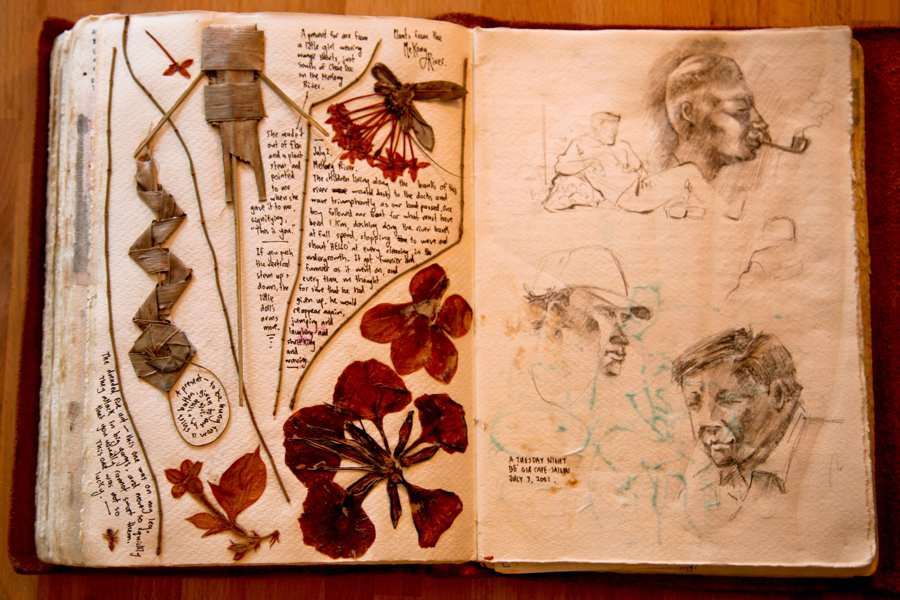 A present for me from
a little girl wearing
orange shorts, just
south of Chau Doc
on the Mekong
River.
Plants from the
Mekong
River.
She made it
out of flax
and a plant
stem, and
pointed
to me
when she
gave it to me,
signifying,
"This is you."
If you push
the vertical
stem up +
down, the
little
doll's
arms
move.
July 2,
Mekong River.
The children living along the banks of this
river would dash to the docks and
wave triumphantly as our boat passed. One
boy followed our boat for what must have
been 1 km, dashing along the river banks
at full speed, stopping to wave and
shout 'HELLO' at every clearing in the
undergrowth. It got funnier and
funnier as it went on, and
every time we thought
for sure that he had
given up, he would
reappear again,
jumping and
laughing and
shrieking
and
waving.
A present
The dreaded fire ant - this one was on my leg.
They attack in big swarms, and move so quickly
that you usually cannot swat them.
This one was not so
lucky.
A TUESDAY NIGHT
DÔ GIA CAFE - SAIGON
JULY 3, 2001.